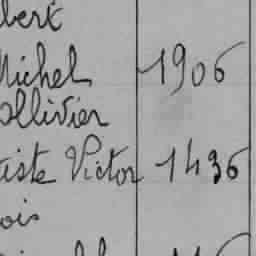 bert
Michel 1906
Ollivier
tiste Victor 1436
ois